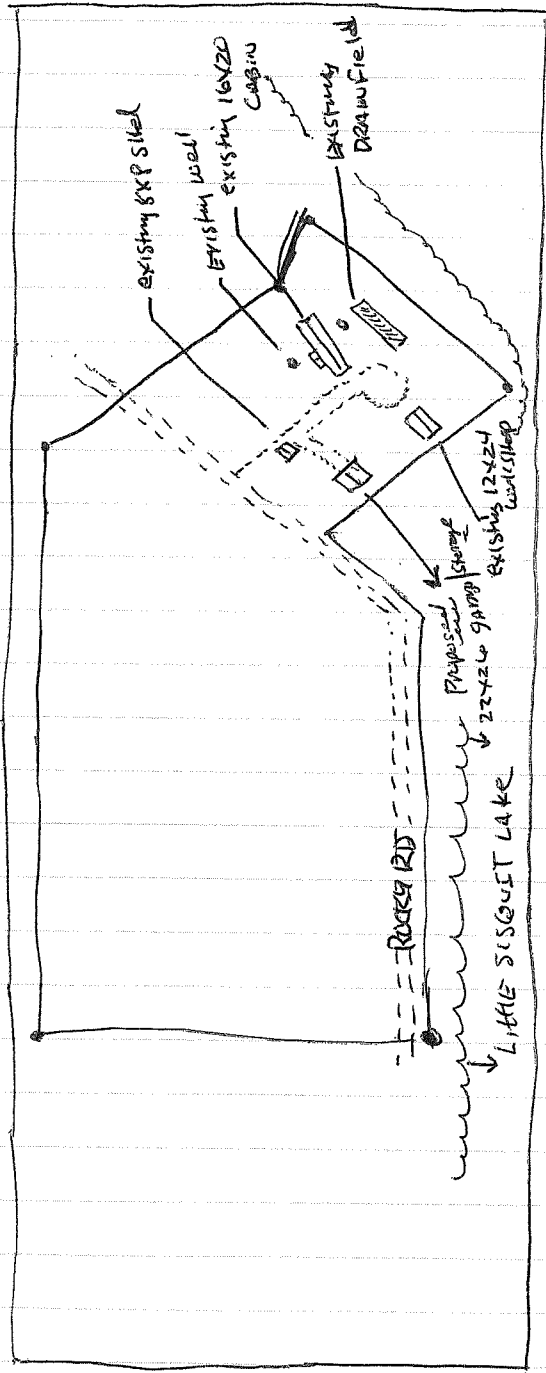 existing 8XP Shed
Existing well
existing 16x20
CABIN
Existing
DRAINField
existing 12x24
workshop
Proposed
22x26 garag / Storage
ROCKY RD
Little SISQUIT LAKE